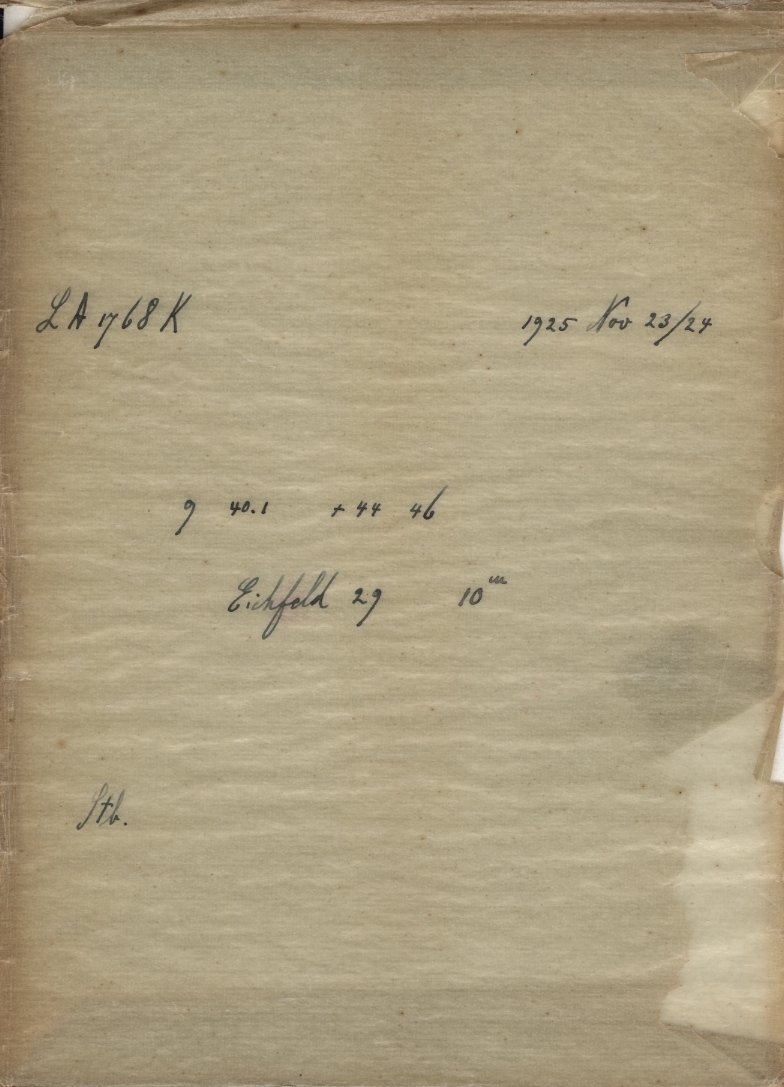 LA 1768 K 1925 Nov 23/24
9 40.1 + 44 46
Eichfeld 29 10ᵐ
Stb.